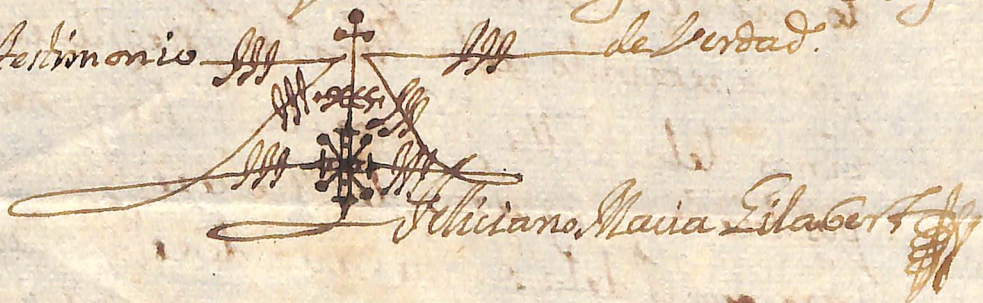 testimonio de Verdad.
Feliciano Macia Gilabert